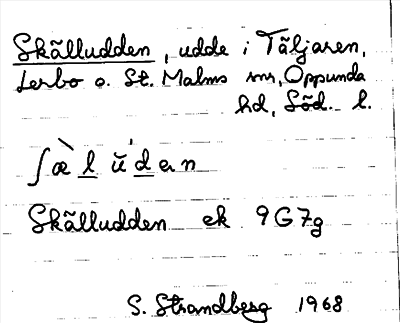 Skälludden, udde i Täljaren,
Lerbo o. St. Malms snr, Oppunda
hd, Söd. l.
ʃæ̀lúdən
Skälludden ek 9G7g
S. Strandberg 1968